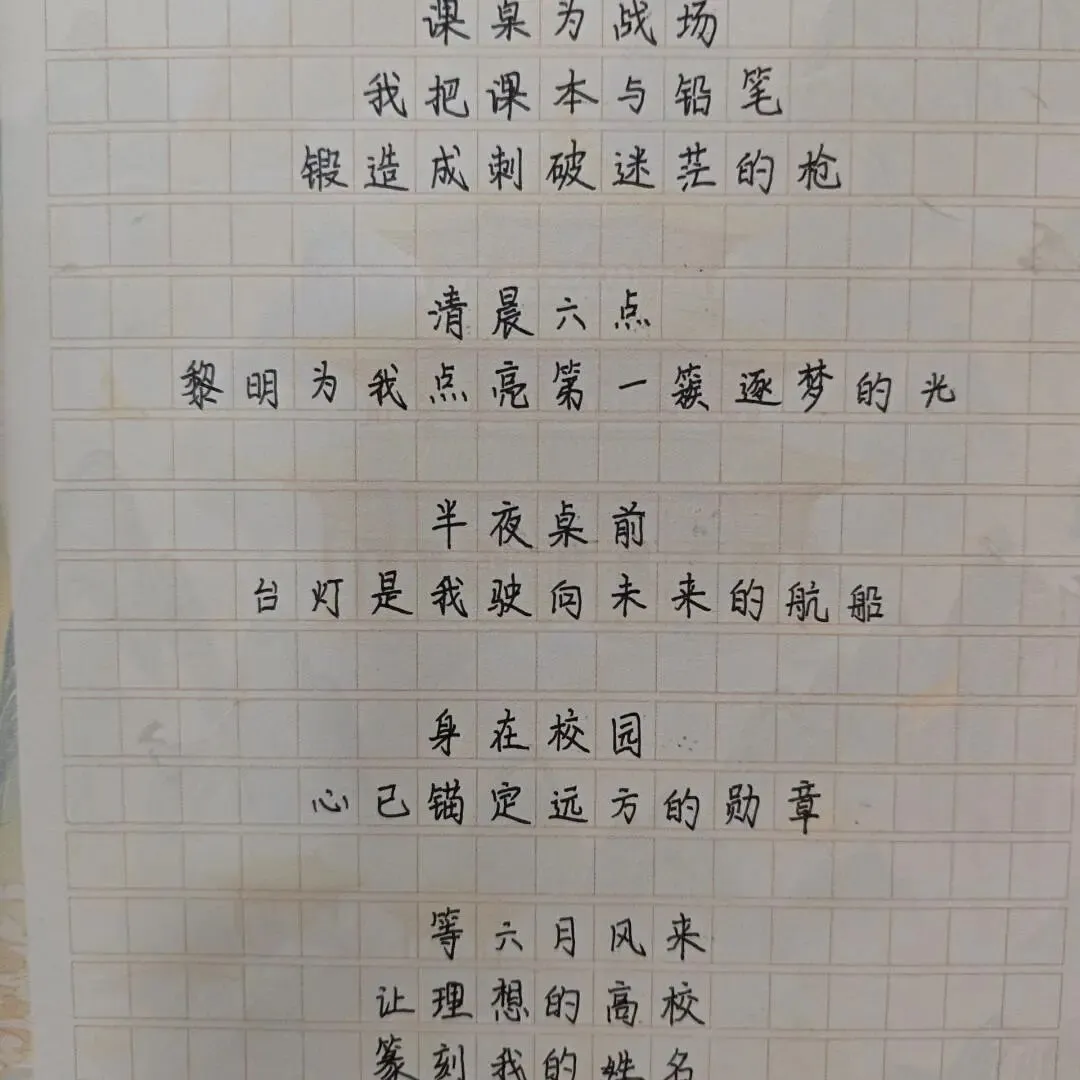 课桌为战场
我把课本与铅笔
锻造成刺破迷茫的枪
清晨六点
黎明为我点亮第一簇逐梦的光
半夜桌前
台灯是我驶向未来的航船
身在校园
心已锚定远方的勋章
等六月风来
让理想的高校
篆刻我的姓名